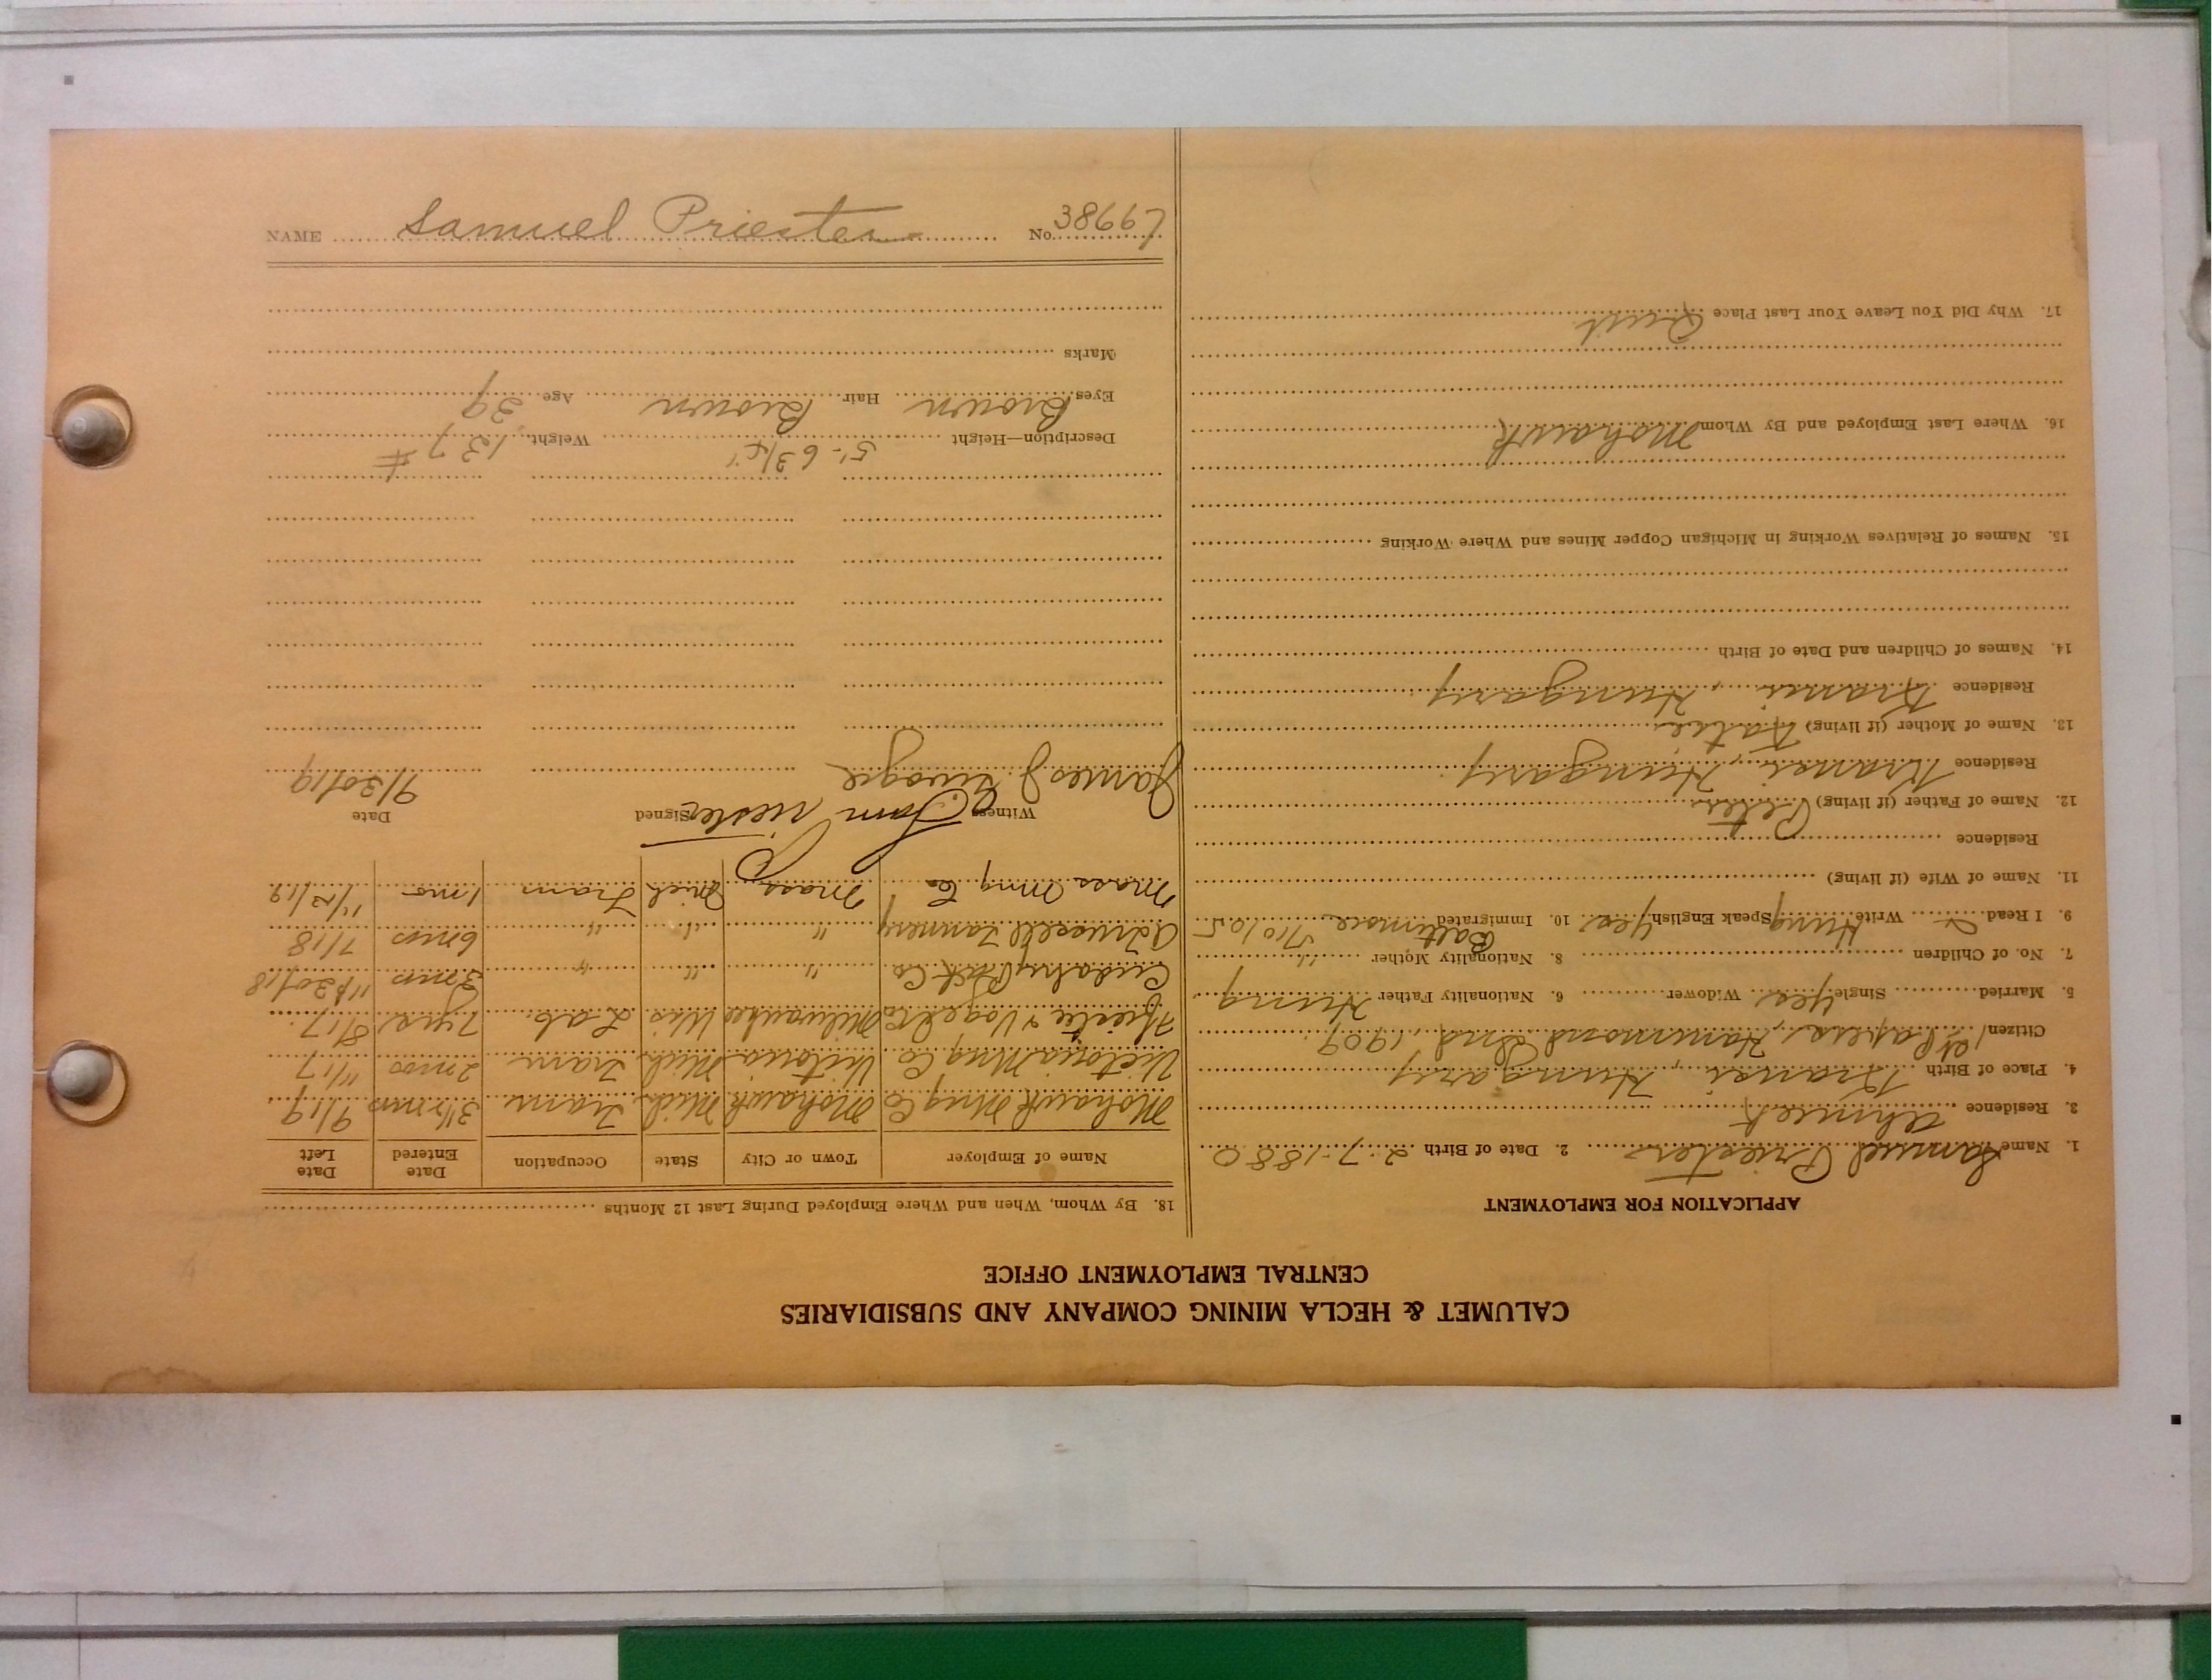 NAME Samuel Priester No. 38667
CALUMET & HECLA MINING COMPANY AND SUBSIDIARIES
CENTRAL EMPLOYMENT OFFICE
APPLICATION FOR EMPLOYMENT
1. Name Samuel Priester 2. Date of Birth 2-7-1880
3. Residence Ahmeek
4. Place of Birth Hungary
Citizen 1st papers, Hammond Ind. 1909
5. Married Single Yes Widower 6. Nationality Father Hung
7. No. of Children 8. Nationality Mother "
9. I Read & Write Hung Speak English Yes 10. Immigrated Baltimore 5/10/05
11. Name of Wife (if living)
Residence
12. Name of Father (if living) Peter
Residence Hungary
13. Name of Mother (if living) Katie
Residence Hungary
14. Names of Children and Date of Birth
15. Names of Relatives Working in Michigan Copper Mines and Where Working
16. Where Last Employed and By Whom Mohawk
17. Why Did You Leave Your Last Place Quit
18. By Whom, When and Where Employed During Last 12 Months
Name of Employer Town or City State Occupation Date Entered Date Left
Mohawk Mng Co Mohawk Mich Tram 3 1/2 mos 9/19
Victoria Mng Co. Victoria Mich Tram 2 mos 11/17
& Vogel Co Milwaukee Wis Lab. 7 yrs 8/17
Cudahy Pack Co " " " 3 mos
Tannery " " " 6 mos 7/18
Mass Mng Co Mass Mich Tram 1 mo 11/12/19
Witness Signed Date
Sam Priester
James J. 9/30/19
Description—Height 5'-6 3/4" Weight 137 #
Eyes Brown Hair Brown Age 39
Marks